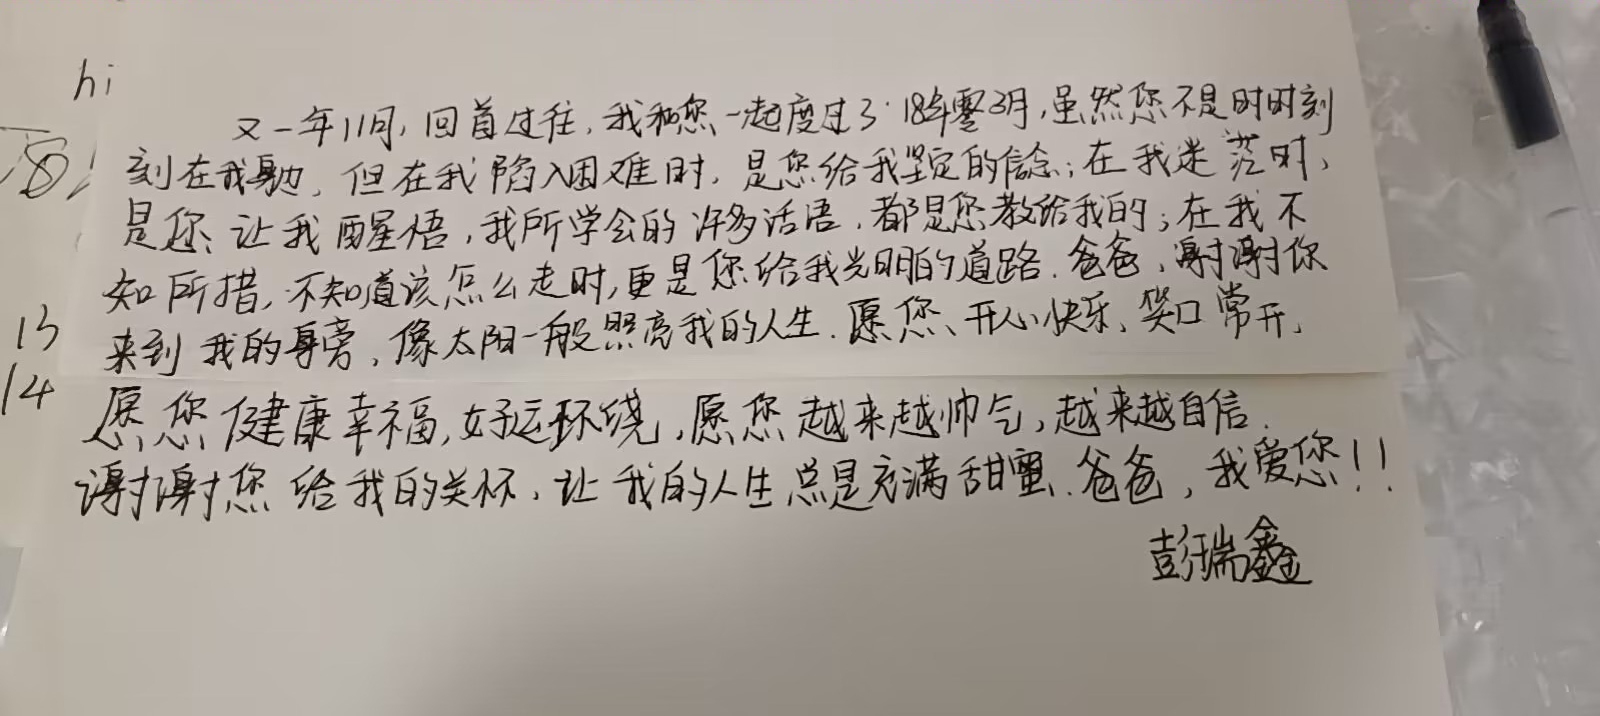 hi
又一年11月,回首过往,我和您一起度过了18年零3月,虽然您不是时时刻
刻在我身边,但在我陷入困难时,是您给我坚定的信念;在我迷茫时,
是您、让我醒悟,我所学会的许多话语,都是您教给我的;在我不
知所措,不知道该怎么走时,更是您给我光明的道路.爸爸,谢谢你
来到我的身旁,像太阳一般照亮我的人生.愿您、开心快乐、笑口常开,
愿您健康幸福,好运环绕,愿您越来越帅气,越来越自信.
谢谢您给我的关怀,让我的人生总是充满甜蜜.爸爸,我爱您!!
彭瑞鑫
13
14